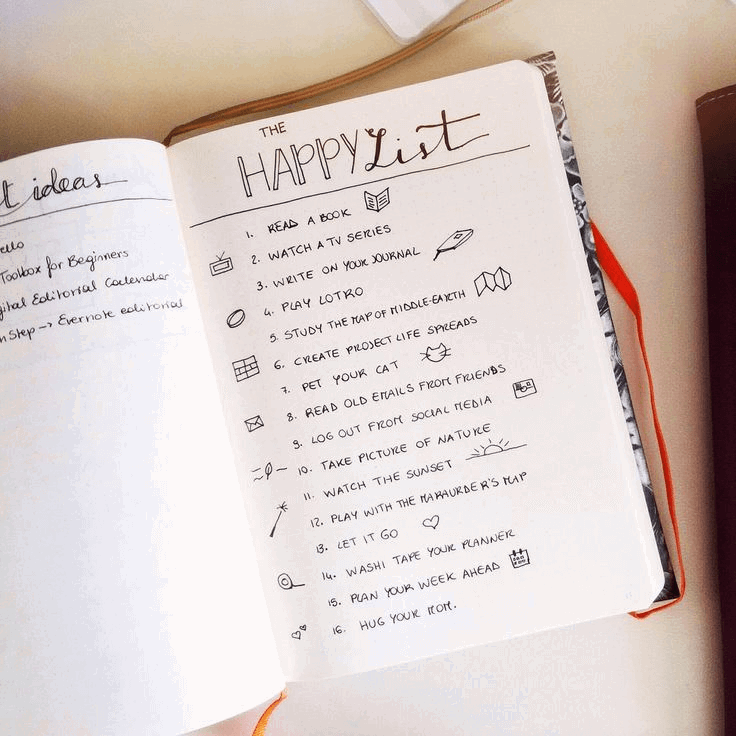 t ideas
ello
Toolbox for Beginners
gital Editorial Calendar
n Step → Evernote editorial
THE
HAPPY List
1. READ A BOOK
2. WATCH A TV SERIES
3. WRITE ON YOUR JOURNAL
4. PLAY LOTRO
5. STUDY THE MAP OF MIDDLE-EARTH
6. CREATE PROJECT LIFE SPREADS
7. PET YOUR CAT
8. READ OLD EMAILS FROM FRIENDS
9. LOG OUT FROM SOCIAL MEDIA
10. TAKE PICTURE OF NATURE
11. WATCH THE SUNSET
12. PLAY WITH THE MARAURDER'S MAP
13. LET IT GO
14. WASHI TAPE YOUR PLANNER
15. PLAN YOUR WEEK AHEAD
16. HUG YOUR MOM.